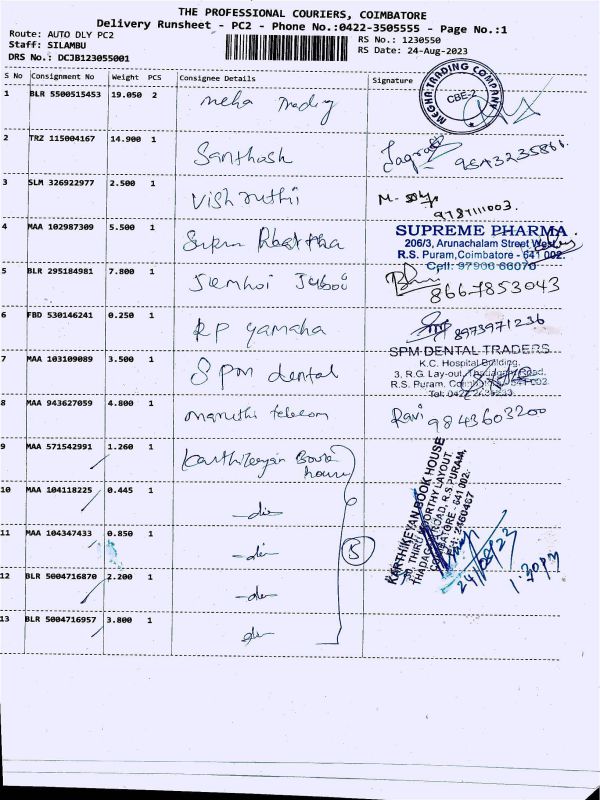 THE PROFESSIONAL COURIERS, COIMBATORE
Delivery Runsheet - PC2 - Phone No.:0422-3505555 - Page No.:1
Route: AUTO DLY PC2
Staff: SILAMBU
DRS No.: DCJB123055001
RS No.: 1230550
RS Date: 24-Aug-2023
S No Consignment No Weight PCS Consignee Details Signature
1 BLR 5500515453 19.050 2 meha Trading
MEGHA TRADING COMPANY
CBE-2
2 TRZ 115004167 14.900 1 Santhosh
3 SLM 326922977 2.500 1 Vish ruthi
9787111003.
4 MAA 102987309 5.500 1
SUPREME PHARMA
206/3, Arunachalam Street West,
R.S. Puram, Coimbatore - 641 002.
Cell: 97906 66070
5 BLR 295184981 7.800 1
8667853043
6 FBD 530146241 0.250 1 RP yamaha
8973971236
7 MAA 103109089 3.500 1 SPM dental
SPM DENTAL TRADERS
K.C. Hospital Building,
3, R.G. Lay-out, Thadagam Road,
R.S. Puram, Coimbatore - 641 002.
8 MAA 943627059 4.800 1 maruthi telecom
Ravi 9843603200
9 MAA 571542991 1.260 1 Karthikeyan Book
house
10 MAA 104118225 0.445 1 -do-
11 MAA 104347433 0.850 1 -do-
12 BLR 5004716870 2.200 1 -do-
13 BLR 5004716957 3.800 1 do
5
KARTHIKEYAN BOOK HOUSE
THIRU MOORTHY LAYOUT,
THADAGAM ROAD, R.S.PURAM,
COIMBATORE - 641 002.
2460467
24/08/23
1:30 PM